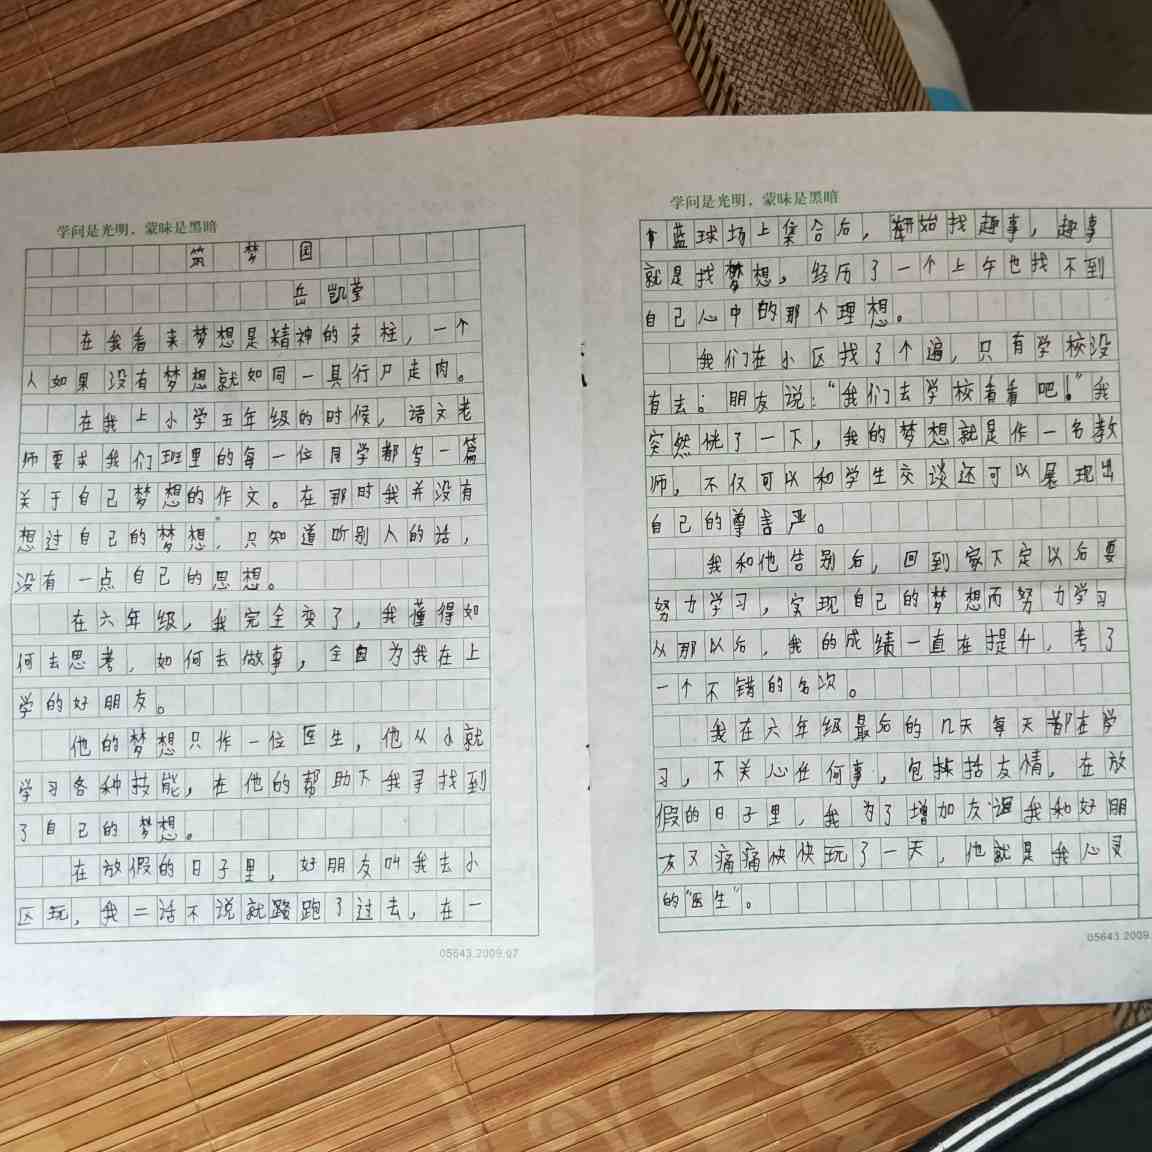 学问是光明，蒙昧是黑暗
筑梦园
岳凯莹
在我看来梦想是精神的支柱，一个
人如果没有梦想就如同一具行尸走肉。
在我上小学五年级的时候，语文老
师要求我们班里的每一位同学都写一篇
关于自己梦想的作文。在那时我并没有
想过自己的梦想，只知道听别人的话，
没有一点自己的思想。
在六年级，我完全变了，我懂得如
何去思考，如何去做事，全因为我在上
学的好朋友。
他的梦想只作一位医生，他从小就
学习各种技能，在他的帮助下我寻找到
了自己的梦想。
在放假的日子里，好朋友叫我去小
区玩，我二话不说就跑了过去，在一
05643.2009.07
学问是光明，蒙昧是黑暗
个蓝球场上集合后，开始找趣事，趣事
就是找梦想，经历了一个上午也找不到
自己心中的那个理想。
我们在小区找了个遍，只有学校没
有去；朋友说："我们去学校看看吧！"我
突然恍了一下，我的梦想就是作一名教
师，不仅可以和学生交谈还可以展现出
自己的尊言严。
我和他告别后，回到家下定以后要
努力学习，实现自己的梦想而努力学习
从那以后，我的成绩一直在提升，考了
一个不错的名次。
我在六年级最后的几天每天都在学
习，不关心任何事，包括友情，在放
假的日子里，我为了增加友谊我和好朋
友又痛痛快快玩了一天，他就是我心灵
的"医生"。
05643.2009